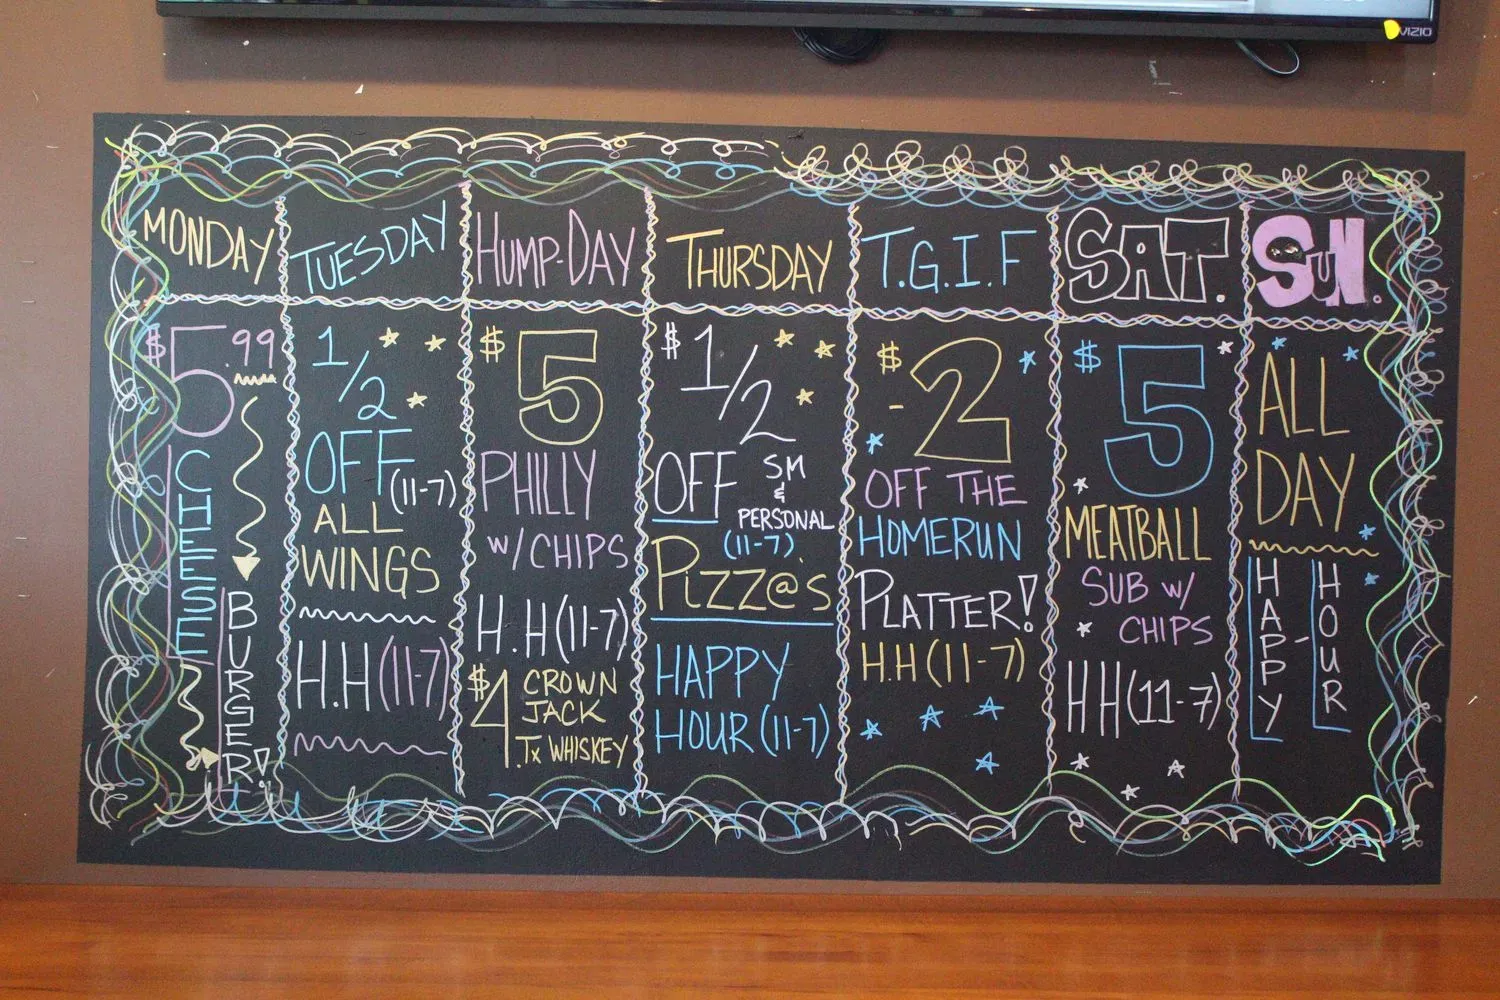 VIZIO
MONDAY
$5.99
CHEESE
BURGER!
TUESDAY
1/2
OFF (11-7)
ALL
WINGS
H.H (11-7)
HUMP-DAY
$5
PHILLY
W/CHIPS
H.H (11-7)
$4 CROWN
JACK
Tx WHISKEY
THURSDAY
$ 1/2
OFF SM
&
PERSONAL
(11-7)
PIZZ@'s
HAPPY
HOUR (11-7)
T.G.I.F
$-2
OFF THE
HOMERUN
PLATTER!
H.H (11-7)
SAT.
$5
MEATBALL
SUB W/
CHIPS
HH (11-7)
SUN.
ALL
DAY
HAPPY-
HOUR